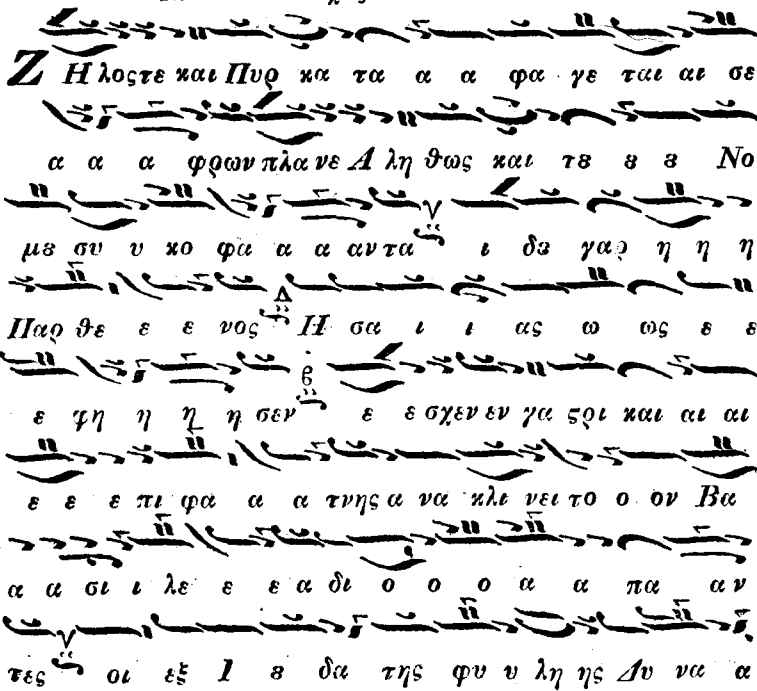 Ζ Η λοςτε και Πυρ κα τα α α φα γε ται αι σε
α α α φρων πλα νε Α λη θως και τȣ ȣ ȣ Νο
μȣ συ υ κο φα α α αν τα ι δȣ γαρ η η η
Παρ θε ε ε νος Η σα ι ι ας ω ως ε ε
ε φη η η η σεν ε ε σχεν εν γα ϛρι και αι αι
ε ε ε πι φα α α τνης α να κλι νει το ο ον Βα
α α σι ι λε ε ε α δι ο ο ο α α πα αν
τες οι εξ Ι ȣ δα της φυ υ λη ης Δυ να α